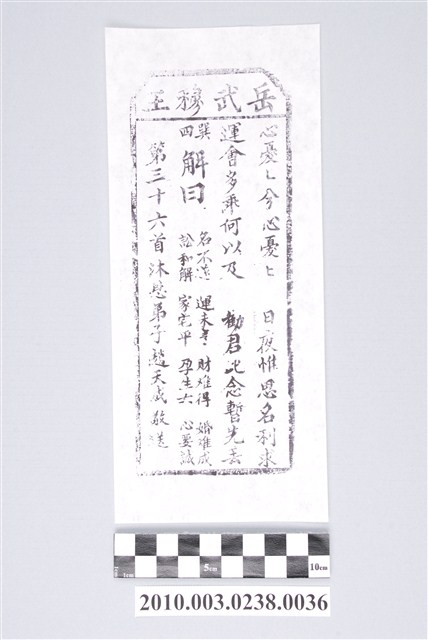 岳武穆王
心憂〻兮心憂〻 日夜惟思名利求
運會多乖何以及 勸君此念暫先丟
巽四 解曰
名不達 運未亨 財难得 婚难成
訟和解 家宅平 孕生六 心要誠
第三十六首 沐恩弟子趙天成敬送
5cm
10cm
2010.003.0238.0036